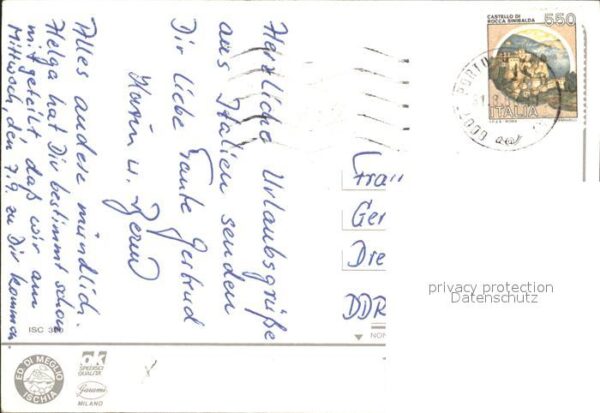 Herzliche Urlaubsgrüße
aus Italien senden
Dir liebe Tante Gertrud
Karin u. Bernd
Alles andere mündlich.
Helga hat Dir bestimmt schon
mitgeteilt, daß wir am
Mittwoch, den 7.9. zu Dir kommen
CASTELLO DI
ROCCA SINIBALDA
550
ITALIA
I.P.Z.S. ROMA
Frau
Ger
Dre
DDR
privacy protection
Datenschutz
ISC
NON
ED. DI MEGLIO
ISCHIA
OK
SPEDISCI
QUALITÀ
Garami
MILANO